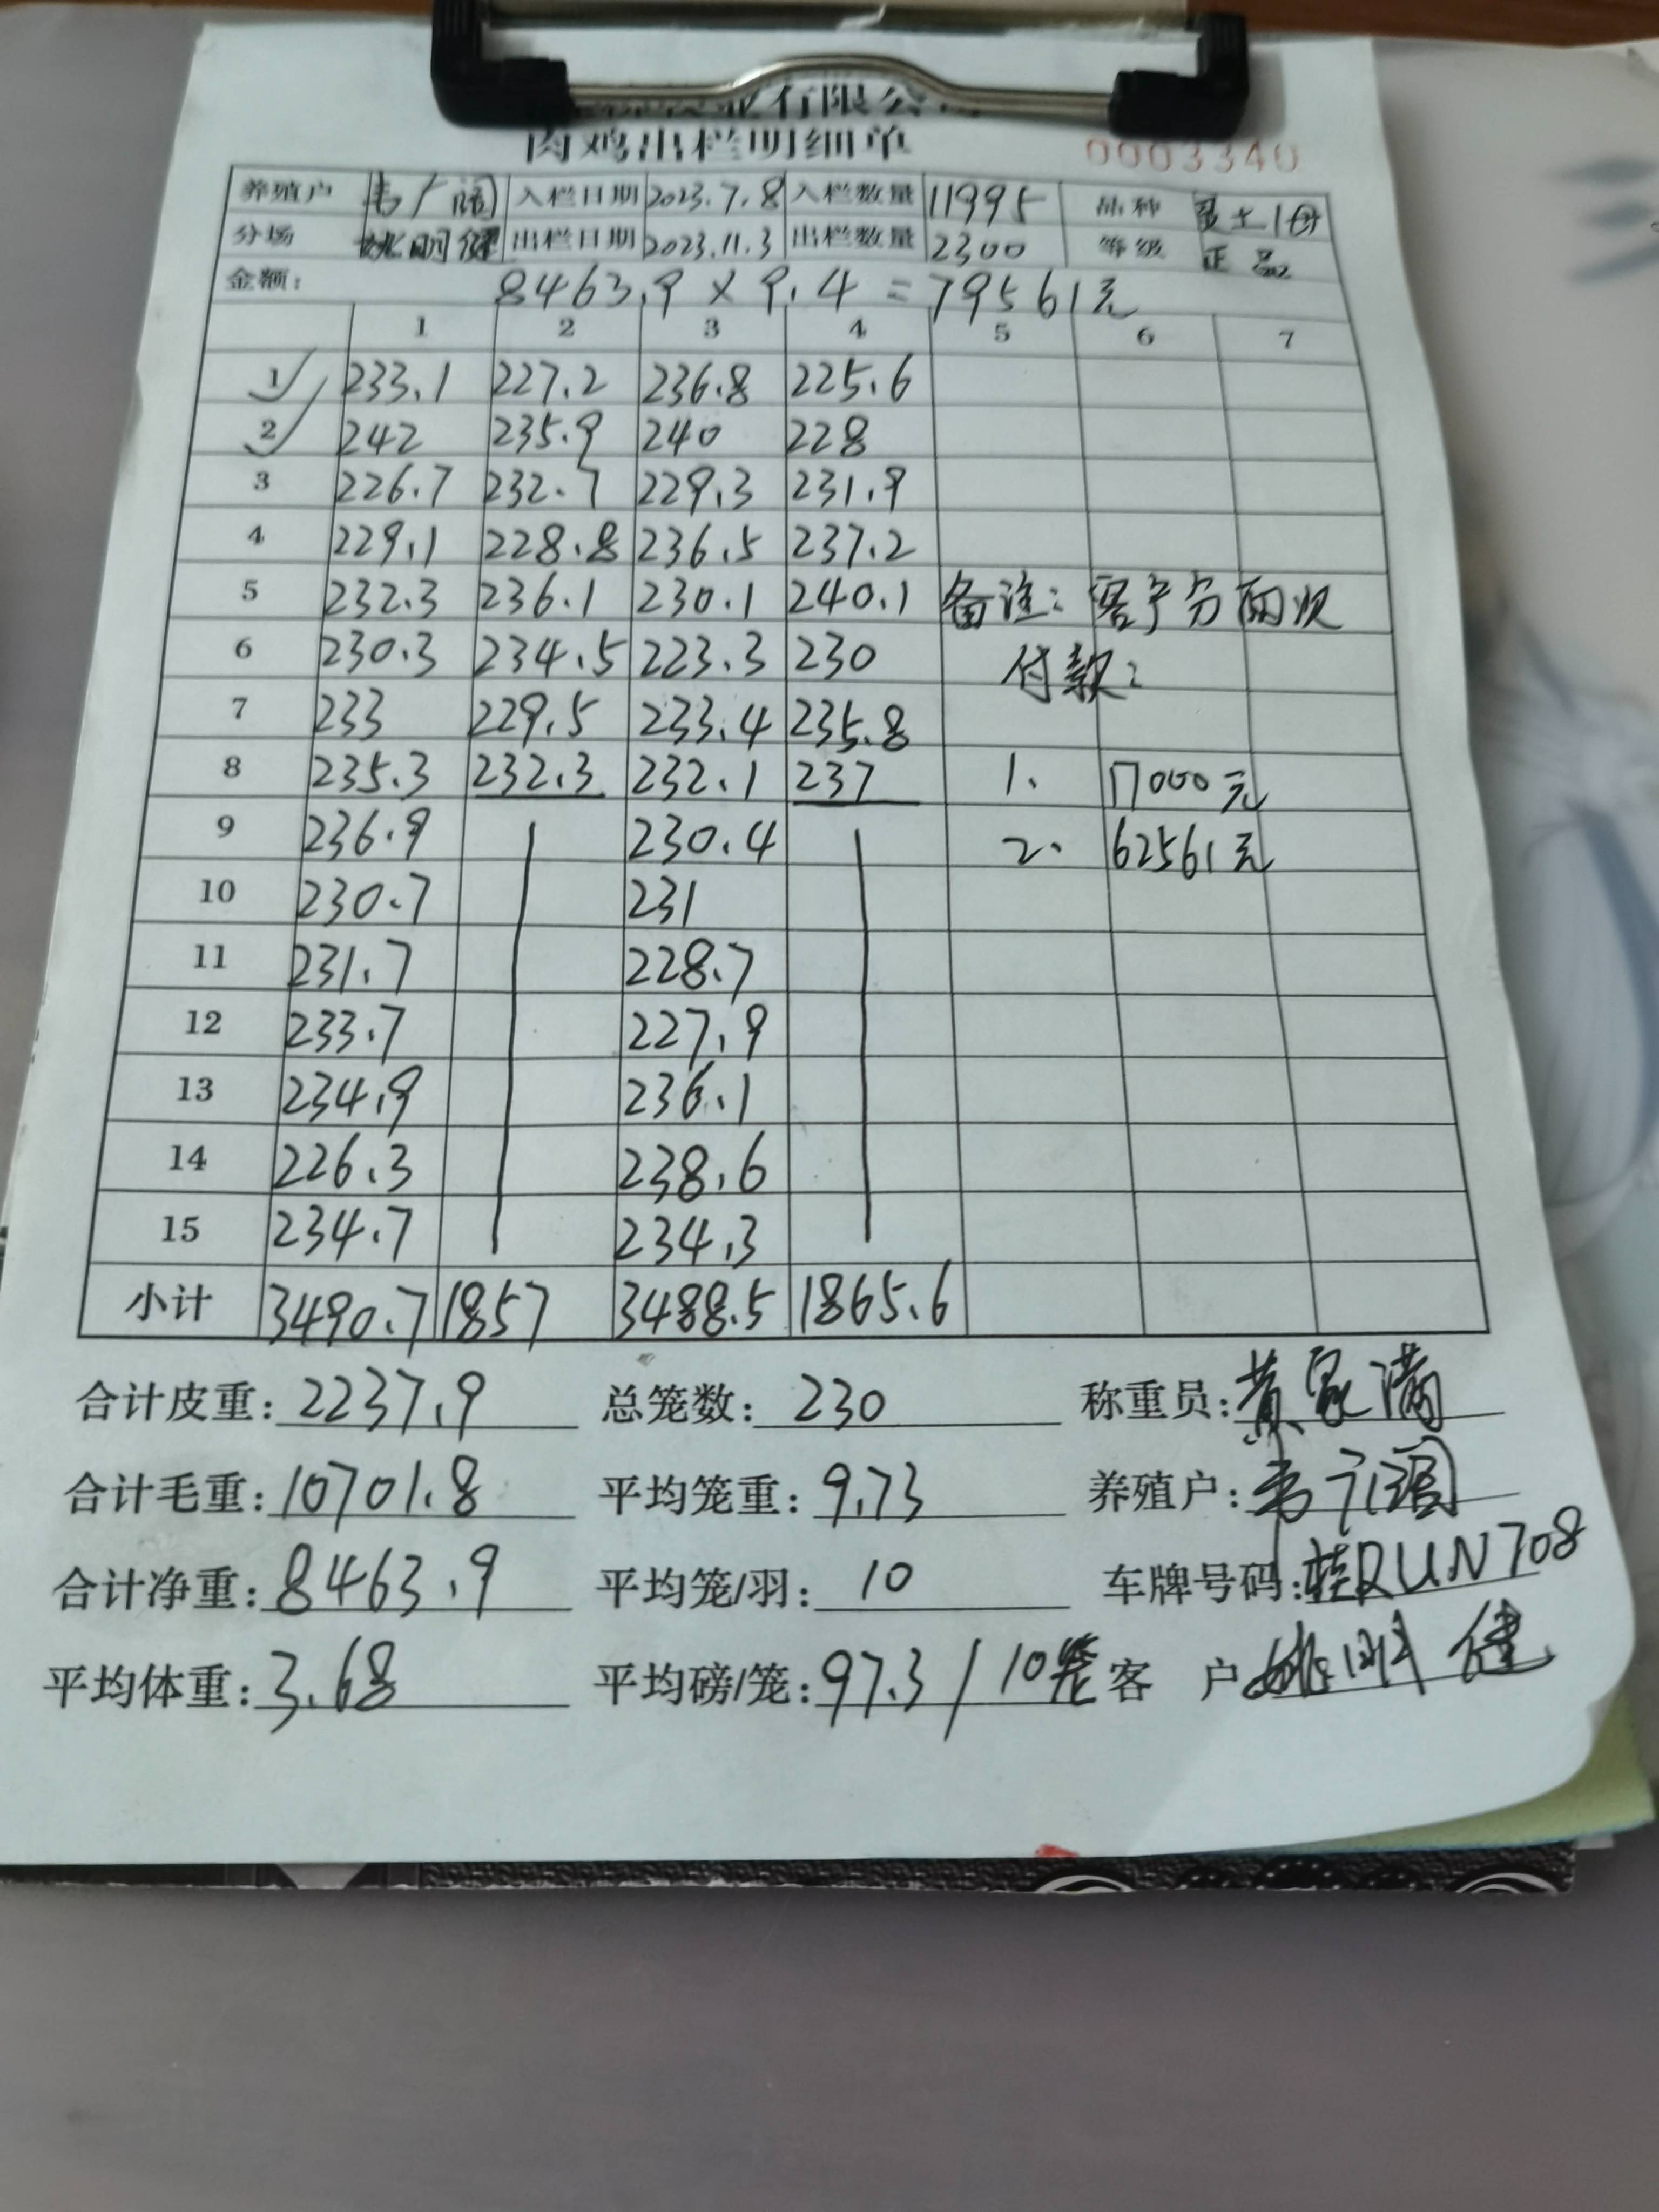 业有限公司
肉鸡出栏明细单
0003340
养殖户 韦广阔 入栏日期 2023.7.8 入栏数量 11995 品种 土1母
分场 姚明健 出栏日期 2023.11.3 出栏数量 2300 等级 正品
金额: 8463.9 × 9.4 = 79561元
1 2 3 4 5 6 7
1 233.1 227.2 236.8 225.6
2 242 235.9 240 228
3 226.7 232.7 229.3 231.9
4 229.1 228.8 236.5 237.2
5 232.3 236.1 230.1 240.1 备注: 客户分两次
6 230.3 234.5 223.3 230 付款:
7 233 229.5 233.4 235.8
8 235.3 232.3 232.1 237 1. 17000元
9 236.9 230.4 2. 62561元
10 230.7 231
11 231.7 228.7
12 233.7 227.9
13 234.9 236.1
14 226.3 238.6
15 234.7 234.3
小计 3490.7 1857 3488.5 1865.6
合计皮重: 2237.9 总笼数: 230 称重员: 黄家满
合计毛重: 10701.8 平均笼重: 9.73 养殖户: 韦广阔
合计净重: 8463.9 平均笼/羽: 10 车牌号码: 桂RUN708
平均体重: 3.68 平均磅/笼: 97.3/10笼 客 户 姚明健